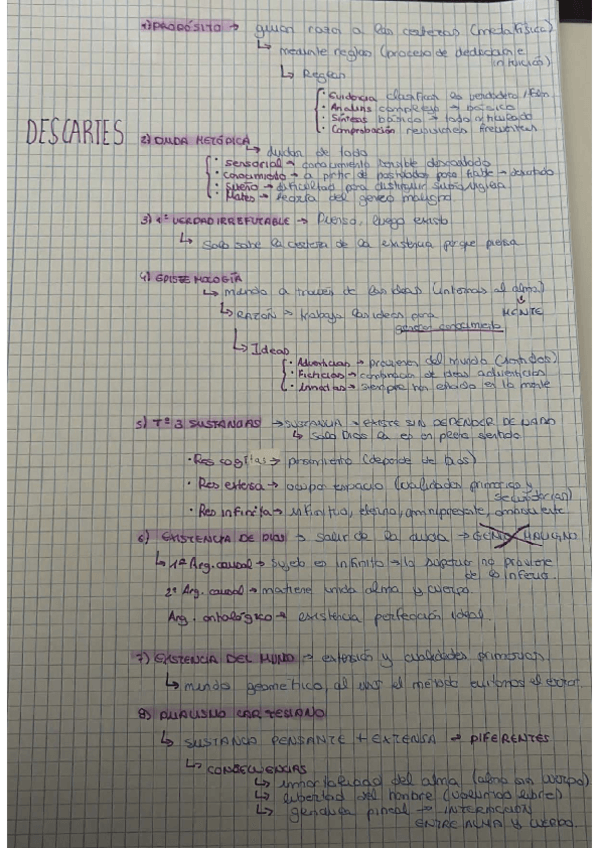 1) PROPÓSITO → guiar razón a las certezas (metafísica)
↳ mediante reglas (proceso de deducción e
intuición)
↳ Reglas
· Evidencia clasificar
· Análisis complejo → básico
· Síntesis básico → todo articulado
· Comprobación revisiones frecuentes
DESCARTES
2) DUDA METÓDICA
↳ dudar de todo
· sensorial → conocimiento sensible descartado
· conocimiento → a partir de postulados poco fiable → descartado
· Sueño → dificultad para distinguir sueño vigilia
· Mates → teoría del genio maligno
3) 1ª VERDAD IRREFUTABLE → Pienso, luego existo
↳ Solo sabe la certeza de la existencia porque piensa
4) EPISTEMOLOGÍA
↳ mundo a través de las ideas (internas al alma)
MENTE
↳ RAZÓN → trabaja las ideas para
generar conocimiento
↳ Ideas
· Adventicias → provienen del mundo (sentidos)
· Ficticias → combinación de ideas adventicias
· Innatas → siempre han estado en la mente
5) Tª 3 SUSTANCIAS → SUSTANCIA → EXISTE SIN DEPENDER DE NADA
↳ Solo Dios lo es en pleno sentido
· Res cogitas → pensamiento (depende de Dios)
· Res extensa → ocupa espacio (cualidades primarias y
secundarias)
· Res infinita → infinita, eterna, omnipresente, omnipotente
6) EXISTENCIA DE DIOS → salir de la duda → GENIO MALIGNO
↳ 1º Arg. causal → Sujeto es infinito → lo superior no proviene
de lo inferior.
2º Arg. causal → mantiene unida alma y cuerpo.
Arg. ontológico → existencia perfección ideal.
7) EXISTENCIA DEL MUNDO → extensión y cualidades primarias
↳ mundo geométrico, al usar el método evitamos el error.
8) DUALISMO CARTESIANO
↳ SUSTANCIA PENSANTE + EXTENSA → DIFERENTES
↳ CONSECUENCIAS
↳ inmortalidad del alma (alma sin cuerpo)
↳ libertad del hombre (voluntad libre)
↳ glándula pineal → INTERACCIÓN
ENTRE ALMA Y CUERPO.